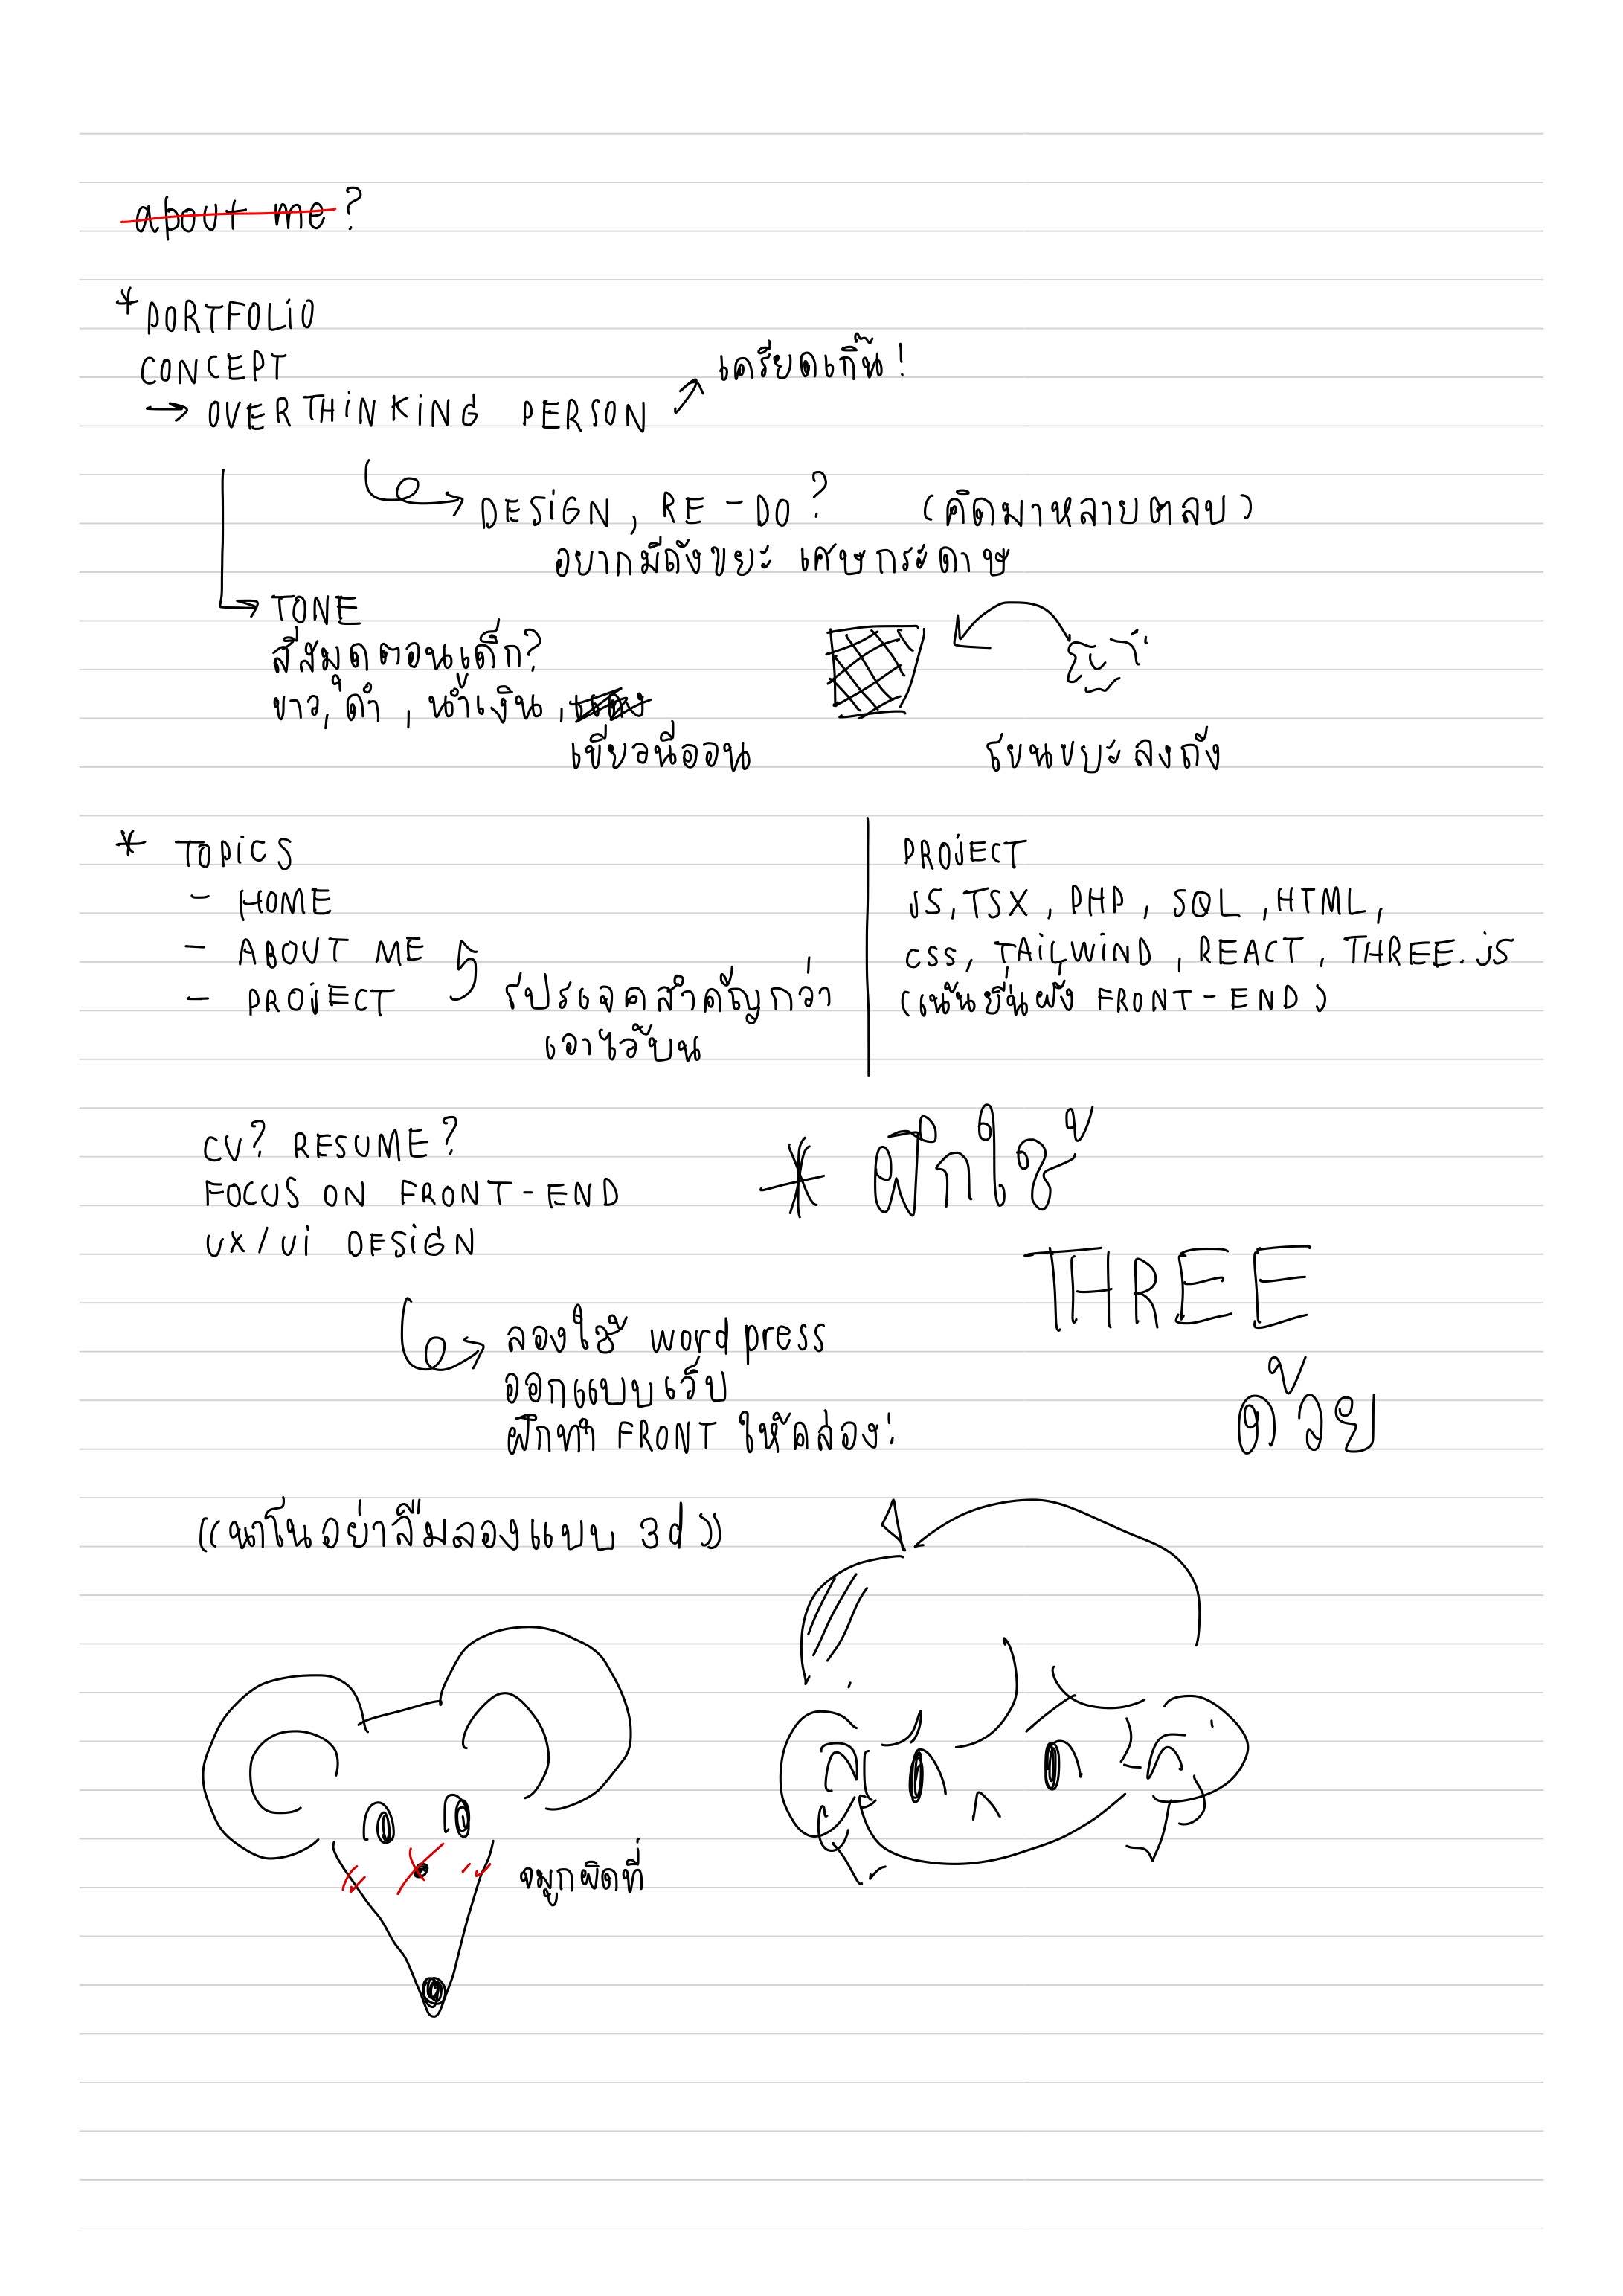 about me?
*PORTFOLIO
CONCEPT
เครียดเกิ๊น!
→ OVERTHINKING PERSON
DESIGN, RE-DO? (คิดมาหลายตลบ)
อยากมีถังขยะ เศษกระดาษ
TONE
สีสมุดตอนเด็ก?
ขาว, ดำ, น้ำเงิน,
เขียวนีออน
โยนขยะลงถัง
* TOPICS
- HOME
- ABOUT ME
- PROJECT
โปรเจคสำคัญกว่า
เอาไว้บน
PROJECT
JS, TSX, PHP, SQL, HTML,
CSS, TAILWIND, REACT, THREE.JS
(เน้นยื่นฝั่ง FRONT-END)
CV? RESUME?
FOCUS ON FRONT-END
UX/UI DESIGN
* ฝึกใช้
THREE
ด้วย
ลองใช้ wordpress
ออกแบบเว็บ
ฝึกทำ FRONT ให้คล่อง!
((นาโนอย่าลืมลองแบบ 3d))
จมูกผิดที่